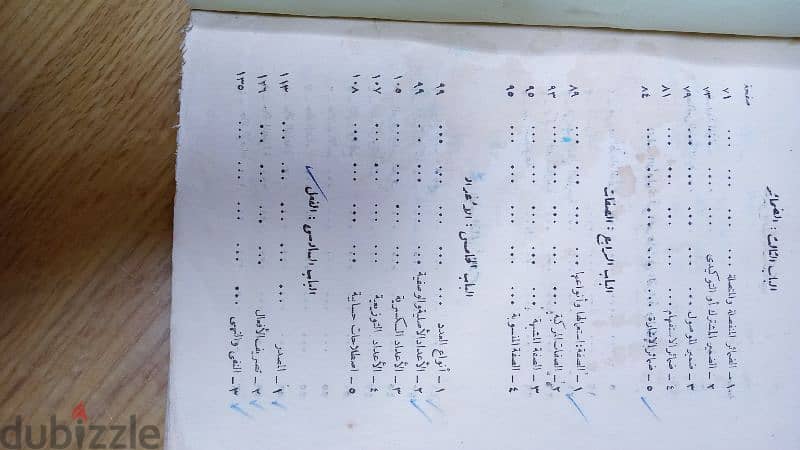 صفحة
الباب الثالث : الضمائر
١ – الضمائر المنفصلة والمتصلة ... ... ... ... ٧١
٢ – الضمير المشترك أو التوكيدى ... ... ... ٧٣
٣ – ضمير الموصول ... ... ... ... ... ٧٩
٤ – ضمائر الاستفهام ... ... ... ... ... ٨١
٥ – ضمائر الإشارة ... ... ... ... ... ٨٤
الباب الرابع : الصفات
١ – الصفة استعمالها وأنواعها ... ... ... ... ٨٩
٢ – الصفات المركبة ... ... ... ... ... ٩٣
٣ – الصفة المشبهة ... ... ... ... ... ٩٥
٤ – الصفة المنسوبة ... ... ... ... ... ٩٥
الباب الخامس : الأعداد
١ – أنواع العدد ... ... ... ... ... ٩٩
٢ – الأعداد الأصلية والوصفية ... ... ... ... ٩٩
٣ – الأعداد الكسرية ... ... ... ... ... ١٠٥
٤ – الأعداد التوزيعية ... ... ... ... ... ١٠٧
٥ – اصطلاحات حسابية ... ... ... ... ١٠٨
الباب السادس : الفعل
١ – المصدر ... ... ... ... ... ١١٣
٢ – تصريف الأفعال ... ... ... ... ... ١٢٦
٣ – النفى والنهى ... ... ... ... ... ١٣٥
dubizzle